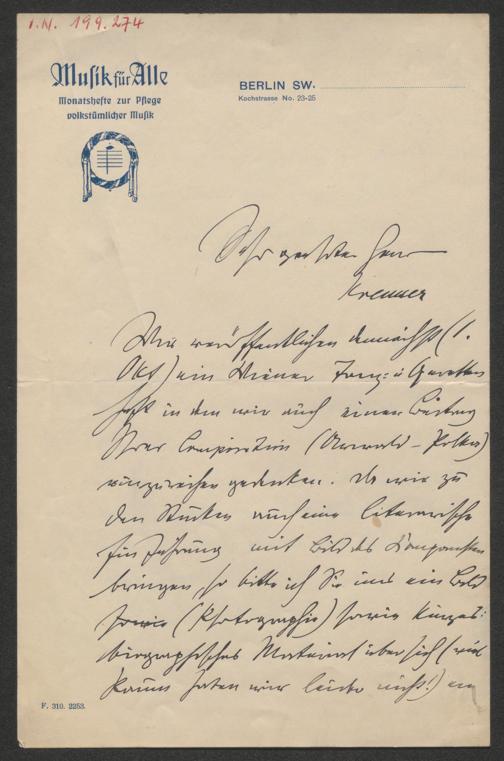 I.N. 199.274
Musik für Alle
Monatshefte zur Pflege
volkstümlicher Musik
BERLIN SW.
Kochstrasse No. 23-25
Sehr geehrter Herr
Kremser
Wir veröffentlichen demnächst (1.
Okt) ein Wiener Tanz: u Operetten
heft in dem wir auch einen Beitrag
Ihrer Composition ( - Polka)
einzureihen gedenken. Da wir zu
den Stücken auch eine literarische
Einführung mit Bild des Komponisten
bringen, so bitte ich Sie uns ein Bild
sowie (Photographie) sowie kurzes:
biographisches Material über sich (viel
Raum haben wir leider nicht!) ein
F. 310. 2253.